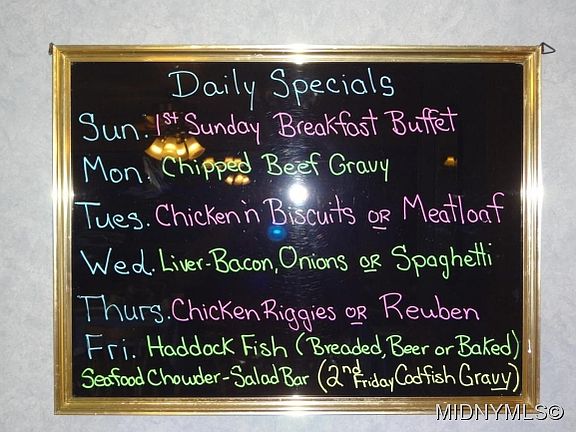 Daily Specials
Sun. 1st Sunday Breakfast Buffet
Mon. Chipped Beef Gravy
Tues. Chicken 'n Biscuits or Meatloaf
Wed. Liver-Bacon, Onions or Spaghetti
Thurs. Chicken Riggies or Reuben
Fri. Haddock Fish (Breaded, Beer or Baked)
Seafood Chowder-Salad Bar (2nd Friday Codfish Gravy)
MIDNYMLS©